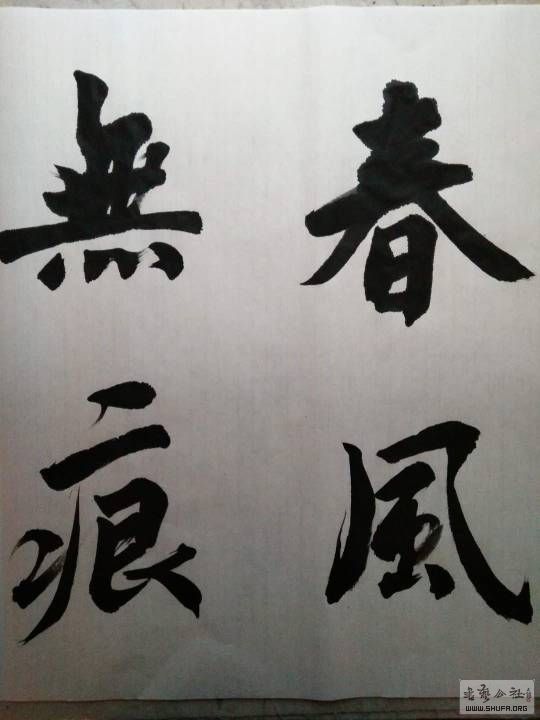 春風
無痕
书艺公社
WWW.SHUFA.ORG